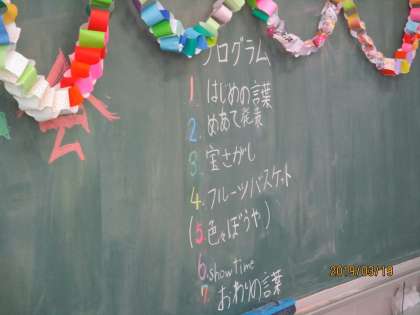 プログラム
1. はじめの言葉
2. めあて発表
3. 宝さがし
4. フルーツバスケット
(5. 色々ぼうや)
6. showtime
7. おわりの言葉
2019/03/19